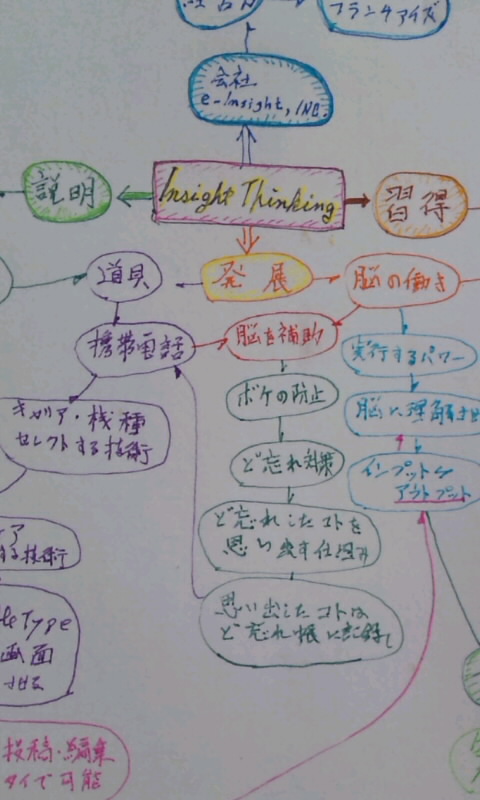 フランチャイズ
会社
e-Insight, INC.
説明
Insight Thinking
習得
道具
発展
脳の働き
携帯電話
脳を補助
実行するパワー
ボケの防止
脳に理解させ
キャリア・機種
セレクトする技術
ど忘れ対策
インプットや
アウトプット
ど忘れしたコトを
思い出す仕組み
ア
る技術
思い出したコトは
ど忘れ帳に記録し
Type
画面
せる
投稿・編集
タイで可能